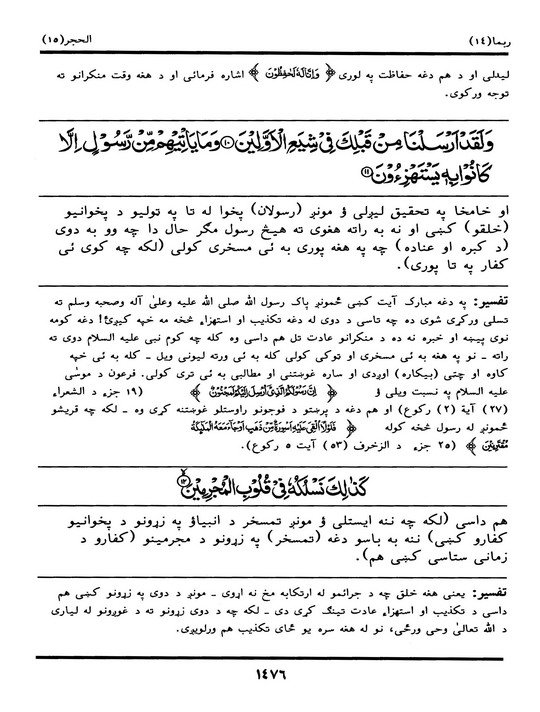 ربما(١٤)
الحجر(١٥)
ليدلی او د هم دغه حفاظت په لوری ﴿ وَاِنَّا لَهٗ لَحٰفِظُوْنَ ﴾ اشاره فرمائی او د هغه وقت منکرانو ته
توجه ورکوی.
وَلَقَدْ اَرْسَلْنَا مِنْ قَبْلِكَ فِیْ شِیَعِ الْاَوَّلِیْنَ۝١٠ وَمَا یَاْتِیْهِمْ مِّنْ رَّسُوْلٍ اِلَّا
كَانُوْا بِهٖ یَسْتَهْزِءُوْنَ۝١١
او خامخا په تحقیق لیږلی ؤ مونږ (رسولان) پخوا له تا په ټولیو د پخوانیو
(خلقو) کښی او نه به راته هغوی ته هیڅ رسول مگر حال دا چه وو به دوی
(د کبره او عناده) چه په هغه پوری به ئی مسخری کولی (لکه چه کوی ئی
کفار په تا پوری).
تفسیر: په دغه مبارک آیت کښی ځمونږ پاک رسول الله صلی الله علیه وعلیٰ آله وصحبه وسلم ته
تسلی ورکړی شوی ده چه تاسی د دوی له دغه تکذیب او استهزاء څخه مه خپه کیږئ! دغه کومه
نوی پیښه او خبره نه ده د منکرانو عادت تل هم داسی وه کله چه کوم نبی علیه السلام دوی ته
راته ـ نو په هغه به ئی مسخری او ټوکی کولی کله به ئی ورته لیونی ویل ـ کله به ئی خپه
کاوه او چتی (بیکاره) اوږدی او ساره غوښتنی او مطالبی به ئی تری کولی. فرعون د موسیٰ
علیه السلام په نسبت ویلی ؤ ﴿ اِنَّ رَسُوْلَكُمُ الَّذِیْۤ اُرْسِلَ اِلَیْكُمْ لَمَجْنُوْنٌ ﴾ (١٩ جزء د الشعراء
(٢٧) آیة (٢) رکوع) او هم دغه د پرښتو د فوجونو راوستلو غوښتنه کړی وه ـ لکه چه قریشو
ځمونږ له رسول څخه کوله ﴿ فَلَوْلَاۤ اُلْقِیَ عَلَیْهِ اَسْوِرَةٌ مِّنْ ذَهَبٍ اَوْ جَآءَ مَعَهُ الْمَلٰٓىِٕكَةُ
مُقْتَرِنِیْنَ ﴾ (٢٥ جزء د الزخرف (٥٣) آیت ٥ رکوع).
كَذٰلِكَ نَسْلُكُهٗ فِیْ قُلُوْبِ الْمُجْرِمِیْنَ۝١٢
هم داسی (لکه چه ننه ایستلی ؤ مونږ تمسخر د انبیاؤ په زړونو د پخوانیو
کفارو کښی) ننه به باسو دغه (تمسخر) په زړونو د مجرمینو (کفارو د
زمانی ستاسی کښی هم).
تفسیر: یعنی هغه خلق چه د جرائمو له ارتکابه مخ نه اړوی ـ مونږ د دوی په زړونو کښی هم
داسی د تکذیب او استهزاء عادت ټینگ کړی دی ـ لکه چه د دوی زړونو ته د غوږونو له لیاری
د الله تعالیٰ وحی ورځی، نو له هغه سره یو ځای تکذیب هم ورلویږی.
١٤٧٦